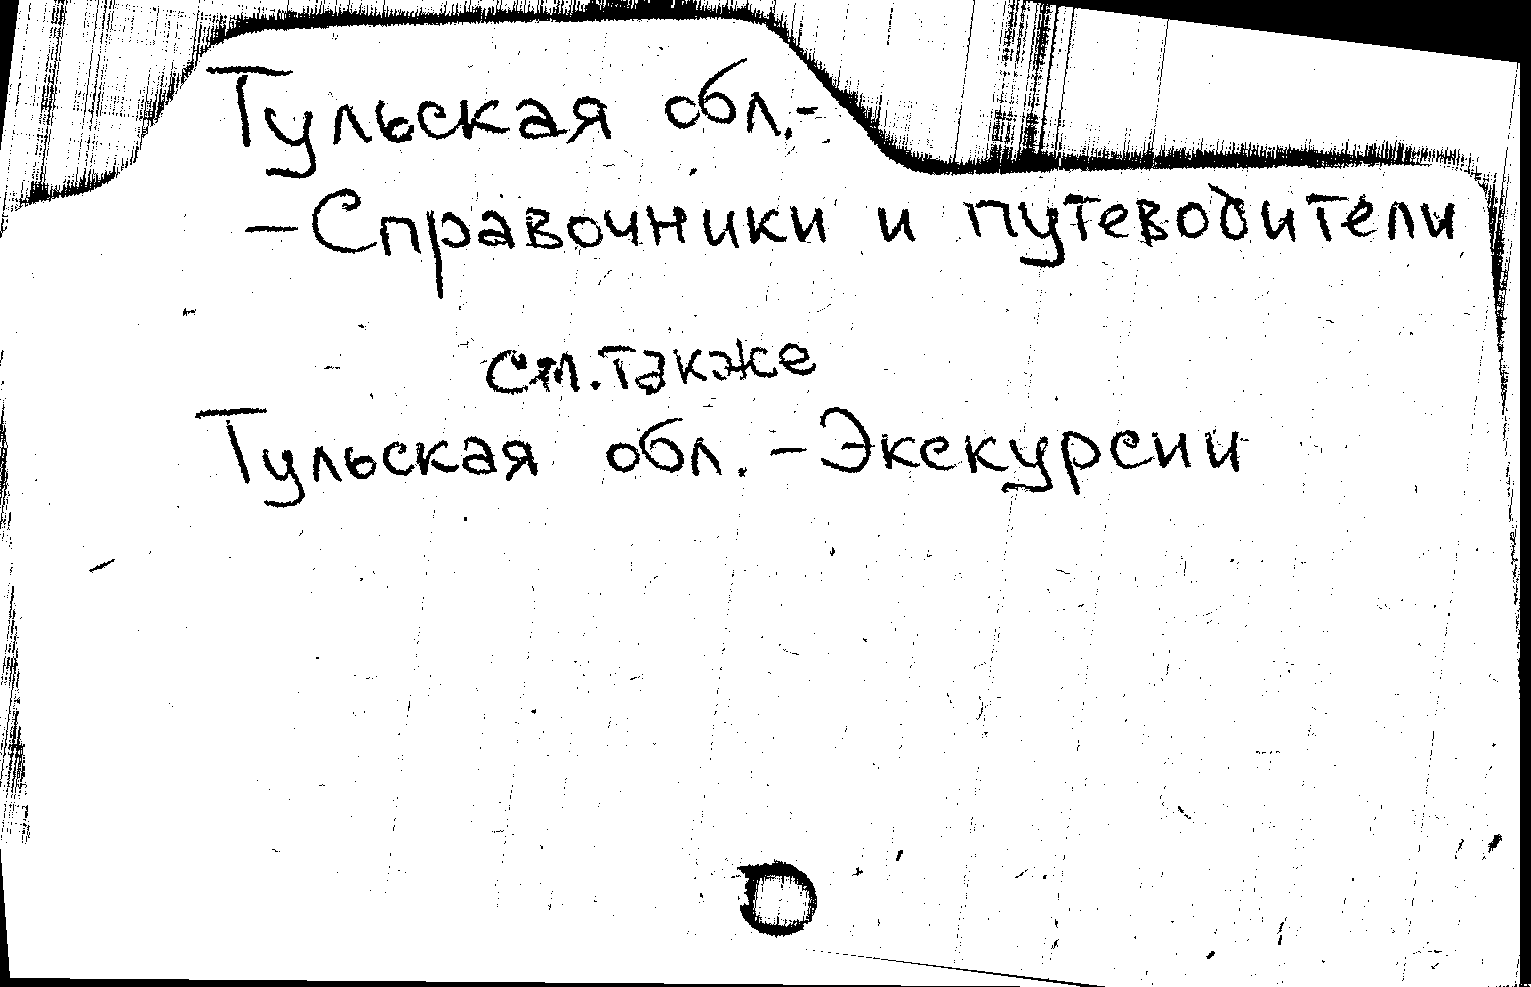 Тульская обл.-
-Справочники и путеводители
см. также
Тульская обл. -Экскурсии